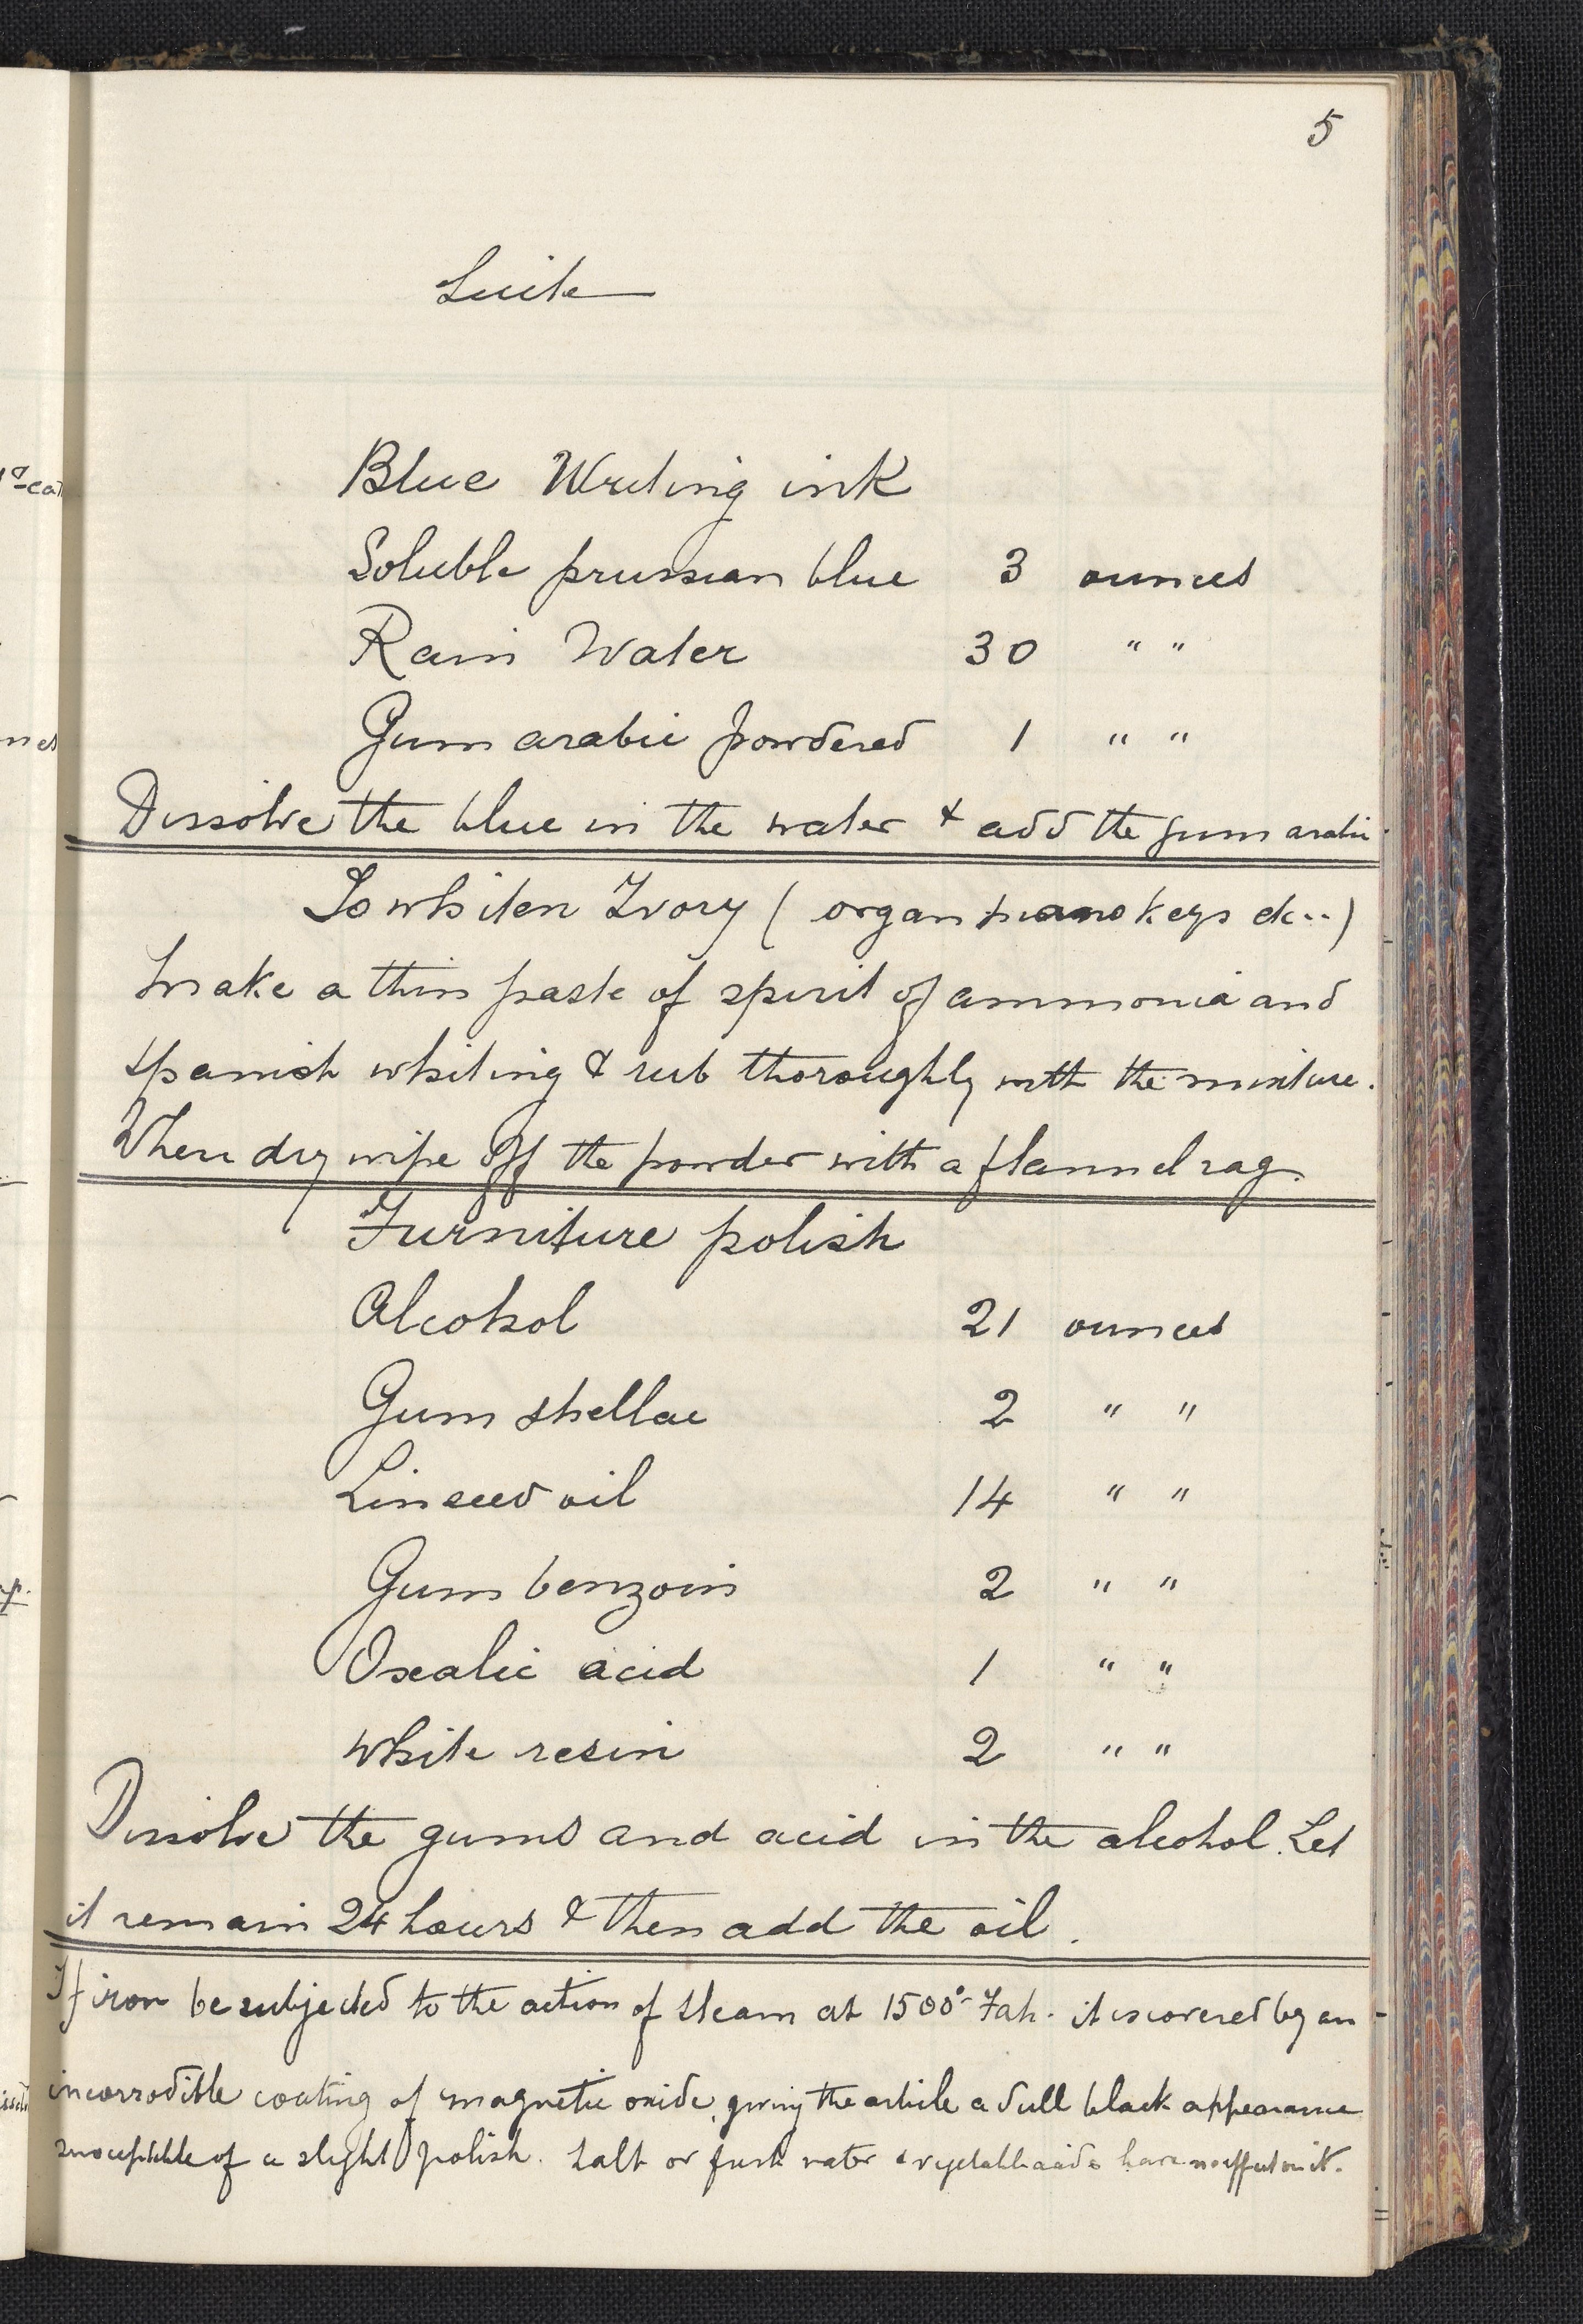 5
Suite
Blue Writing ink
Soluble prussian blue 3 ounces
Rain Water 30 " "
Gum arabic powdered 1 " "
Dissolve the blue in the water & add the gum arabic.
To whiten Ivory ( organ piano keys etc.. )
Make a thin paste of spirit of ammonia and
Spanish whiting & rub thoroughly with the mixture.
When dry wipe off the powder with a flannel rag.
Furniture polish
Alcohol 21 ounces
Gum shellac 2 " "
Linseed oil 14 " "
Gum benzoin 2 " "
Oxalic acid 1 " "
White resin 2 " "
Dissolve the gums and acid in the alcohol. Let
it remain 24 hours & then add the oil.
If iron be subjected to the action of steam at 1500° Fah. it is covered by an
incorrodible coating of magnetic oxide, giving the article a dull black appearance
susceptible of a slight polish. Salt or fresh water & vegetable acids have no effect on it.